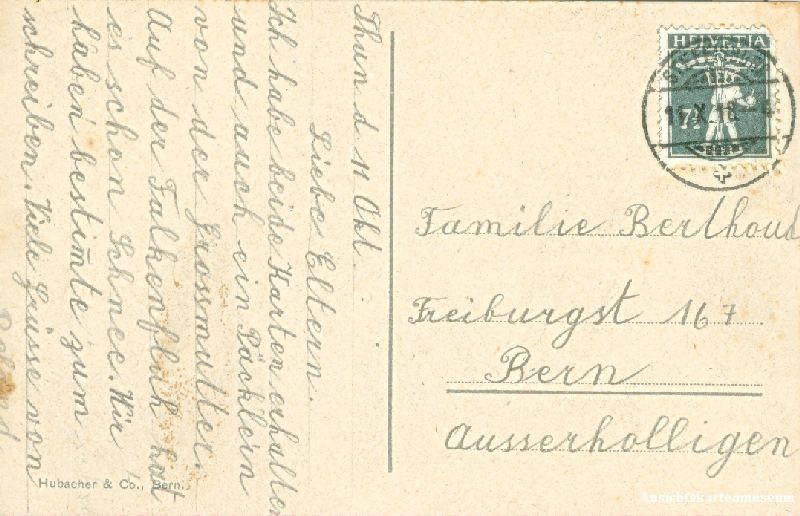 Thun d 11 Okt.
Liebe Eltern.
Ich habe beide Karten erhalten
und auch ein Päcklein
von der Grossmutter.
Auf der Falkenfluh hat
es schon Schnee. Wir
haben bestimte zum
schreiben. Viele Grüsse von
HELVETIA
7½
11.X.18.
Familie Berthoud
Freiburgst 167
Bern
Ausserholligen
Hubacher & Co., Bern.
Ansichtskartenmuseum